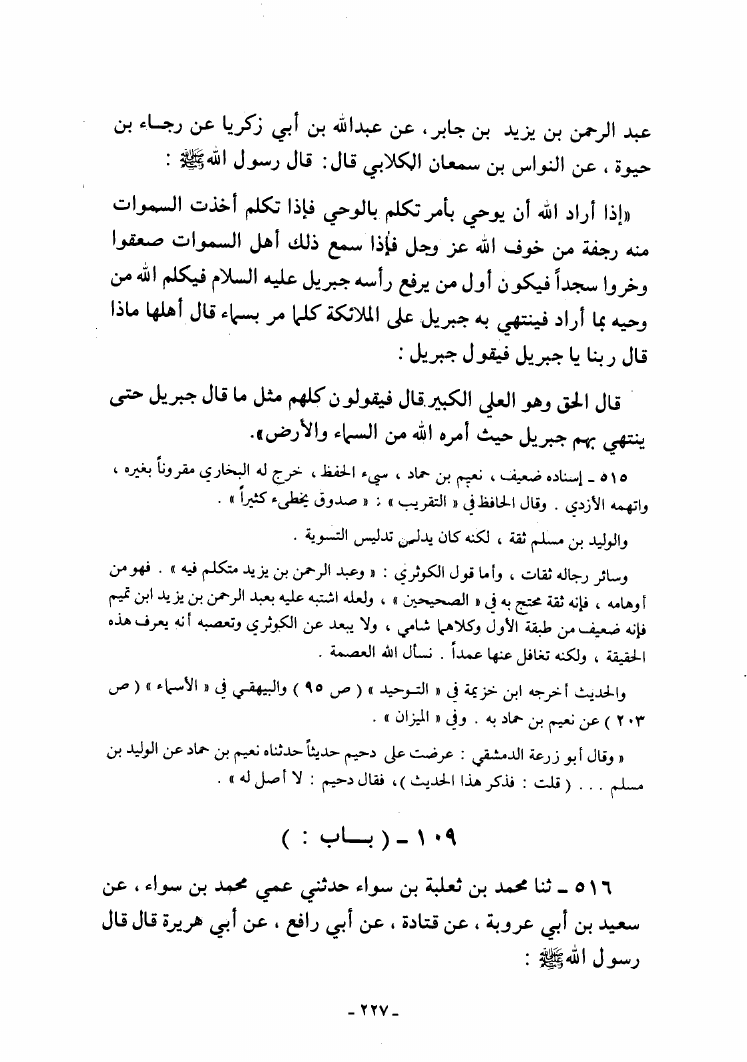 عبد الرحمن بن يزيد بن جابر، عن عبدالله بن أبي زكريا عن رجاء بن
حيوة، عن النواس بن سمعان الكلابي قال: قال رسول الله ﷺ :
«إذا أراد الله أن يوحي بأمر تكلم بالوحي فإذا تكلم أخذت السموات
منه رجفة من خوف الله عز وجل فإذا سمع ذلك أهل السموات صعقوا
وخروا سجداً فيكون أول من يرفع رأسه جبريل عليه السلام فيكلم الله من
وحيه بما أراد فينتهي به جبريل على الملائكة كلما مر بسماء قال أهلها ماذا
قال ربنا يا جبريل فيقول جبريل :
قال الحق وهو العلي الكبير قال فيقولون كلهم مثل ما قال جبريل حتى
ينتهي بهم جبريل حيث أمره الله من السماء والأرض».
٥١٥ - إسناده ضعيف، نعيم بن حماد ، سيء الحفظ، خرج له البخاري مقروناً بغيره ،
واتهمه الأزدي . وقال الحافظ في « التقريب » : « صدوق يخطىء كثيراً » .
والوليد بن مسلم ثقة ، لكنه كان يدلس تدليس التسوية .
وسائر رجاله ثقات ، وأما قول الكوثري : « وعبد الرحمن بن يزيد متكلم فيه » . فهو من
أوهامه ، فإنه ثقة محتج به في « الصحيحين » ، ولعله اشتبه عليه بعبد الرحمن بن يزيد ابن تميم
فإنه ضعيف من طبقة الأول وكلاهما شامي ، ولا يبعد عن الكوثري وتعصبه أنه يعرف هذه
الحقيقة ، ولكنه تغافل عنها عمداً . نسأل الله العصمة .
والحديث أخرجه ابن خزيمة في « التوحيد » ( ص ٩٥ ) والبيهقي في « الأسماء » ( ص
٢٠٣ ) عن نعيم بن حماد به . وفي « الميزان » .
« وقال أبو زرعة الدمشقي : عرضت على دحيم حديثاً حدثناه نعيم بن حماد عن الوليد بن
مسلم ... ( قلت : فذكر هذا الحديث )، فقال دحيم : لا أصل له » .
١٠٩ - ( باب : )
٥١٦ - ثنا محمد بن ثعلبة بن سواء حدثني عمي محمد بن سواء، عن
سعيد بن أبي عروبة ، عن قتادة، عن أبي رافع ، عن أبي هريرة قال قال
رسول الله ﷺ :
- ٢٢٧ -